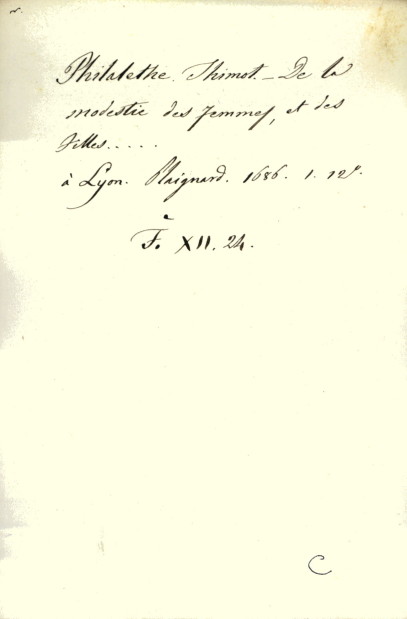 Philalethe Thimot._ De la
modestie des femmes, et des
filles.....
à Lyon. Plaignard. 1686. 1. 12°.
F. XII. 24.
C